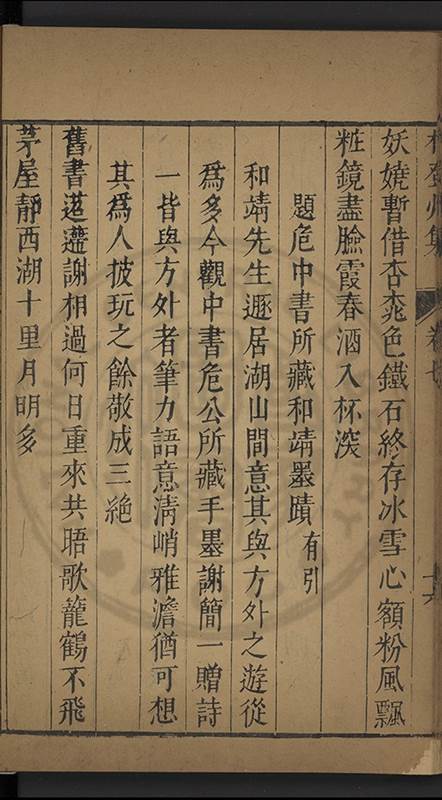 妖嬈暫借杏桃色鐵石終存冰雪心額粉風飄
粧鏡盡臉霞春酒入杯深
題危中書所藏和靖墨蹟有引
和靖先生遯居湖山間意其與方外之遊從
爲多今觀中書危公所藏手墨謝簡一贈詩
一皆與方外者筆力語意清峭雅澹猶可想
其爲人披玩之餘敬成三絶
舊書遥遣謝相過何日重來共晤歌籠鶴不飛
茅屋靜西湖十里月明多